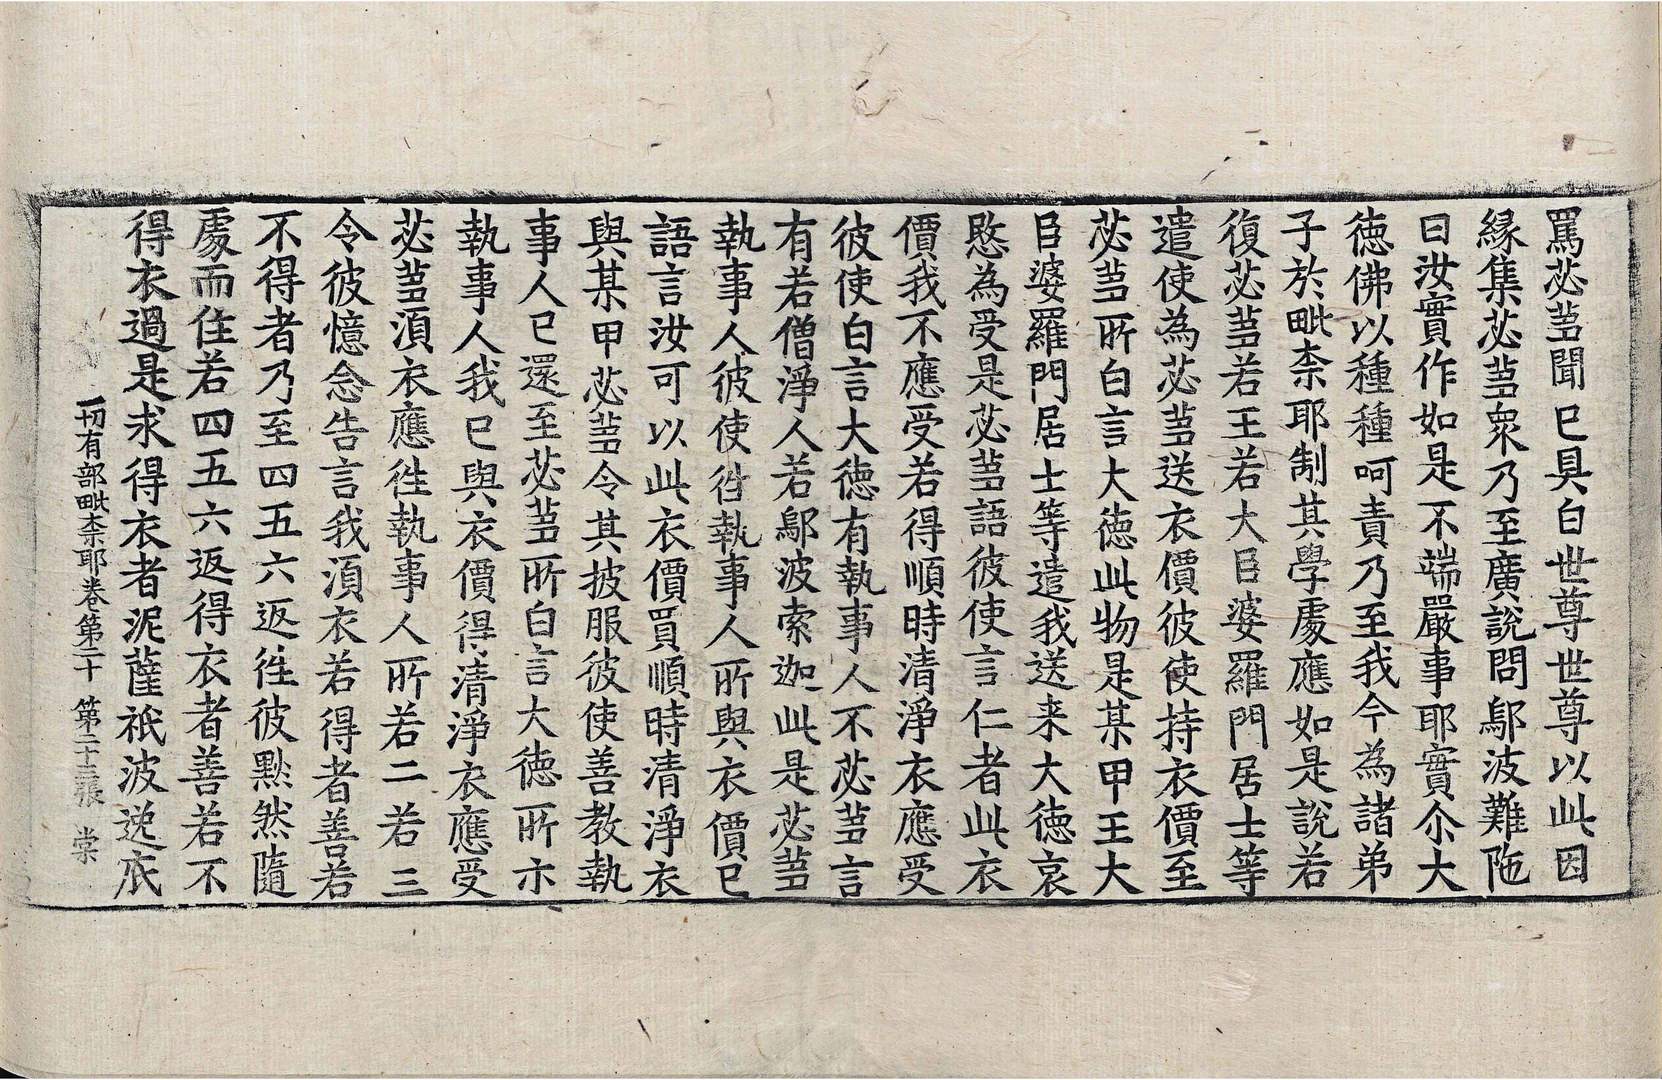 罵苾蒭聞已具白世尊世尊以此因
緣集苾蒭衆乃至廣說問鄔波難陁
曰汝實作如是不端嚴事耶實尒大
德佛以種種呵責乃至我今為諸弟
子於毗柰耶制其學處應如是說若
復苾蒭若王若大臣婆羅門居士等
遣使為苾蒭送衣價彼使持衣價至
苾蒭所白言大德此物是某甲王大
臣婆羅門居士等遣我送来大德哀
愍為受是苾蒭語彼使言仁者此衣
價我不應受若得順時清淨衣應受
彼使白言大德有執事人不苾蒭言
有若僧淨人若鄔波索迦此是苾蒭
執事人彼使徃執事人所與衣價已
語言汝可以此衣價買順時清淨衣
與某甲苾蒭令其披服彼使善教執
事人已還至苾蒭所白言大德所示
執事人我已與衣價得清淨衣應受
苾蒭湏衣應徃執事人所若二若三
令彼憶念告言我湏衣若得者善若
不得者乃至四五六返徃彼默然隨
處而住若四五六返得衣者善若不
得衣過是求得衣者泥薩祇波逸底
一切有部毗柰耶卷第二十　第二十三張　棠